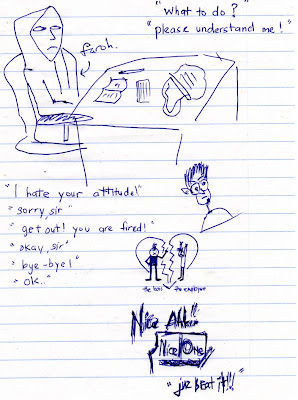 "What to do?"
"please understand me!"
farah.
"I hate your attitude!"
"sorry, sir"
"get out! you are fired!"
"okay, sir"
"bye-bye!"
"ok.."
the boss
the employee
Nice
Nice One
BEAT IT!!"